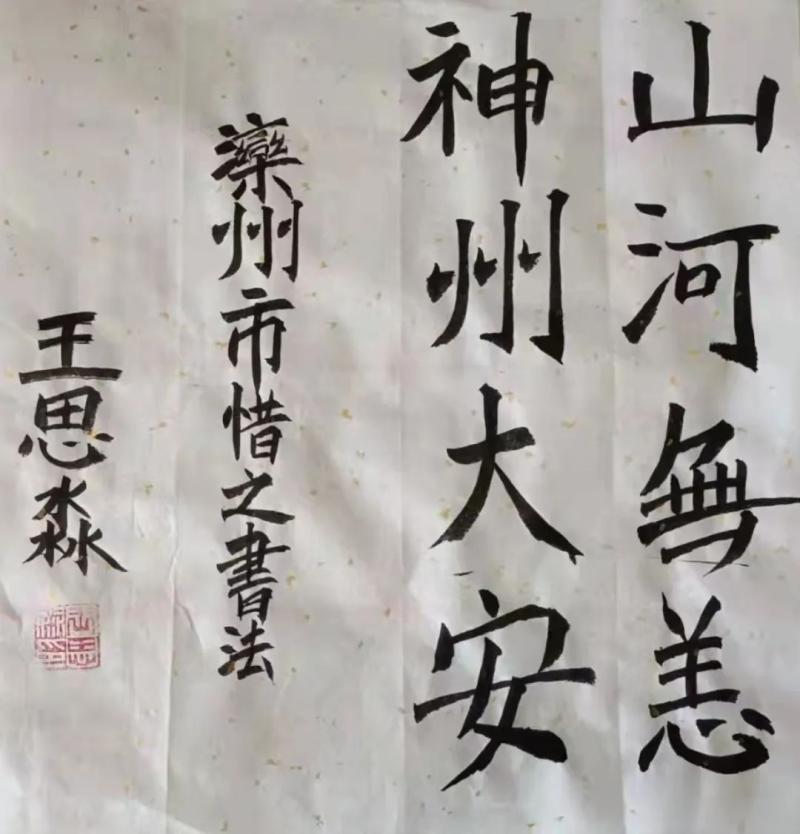 山河無恙
神州大安
滦州市惜之書法
王思淼